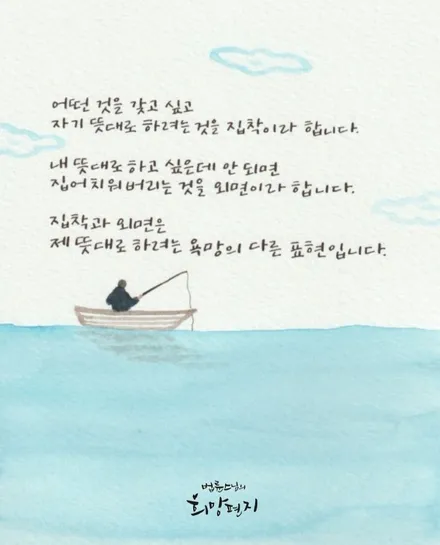 어떤 것을 갖고 싶고
자기 뜻대로 하려는 것을 집착이라 합니다.
내 뜻대로 하고 싶은데 안 되면
집어치워버리는 것을 외면이라 합니다.
집착과 외면은
제 뜻대로 하려는 욕망의 다른 표현입니다.
법륜스님의
희망편지